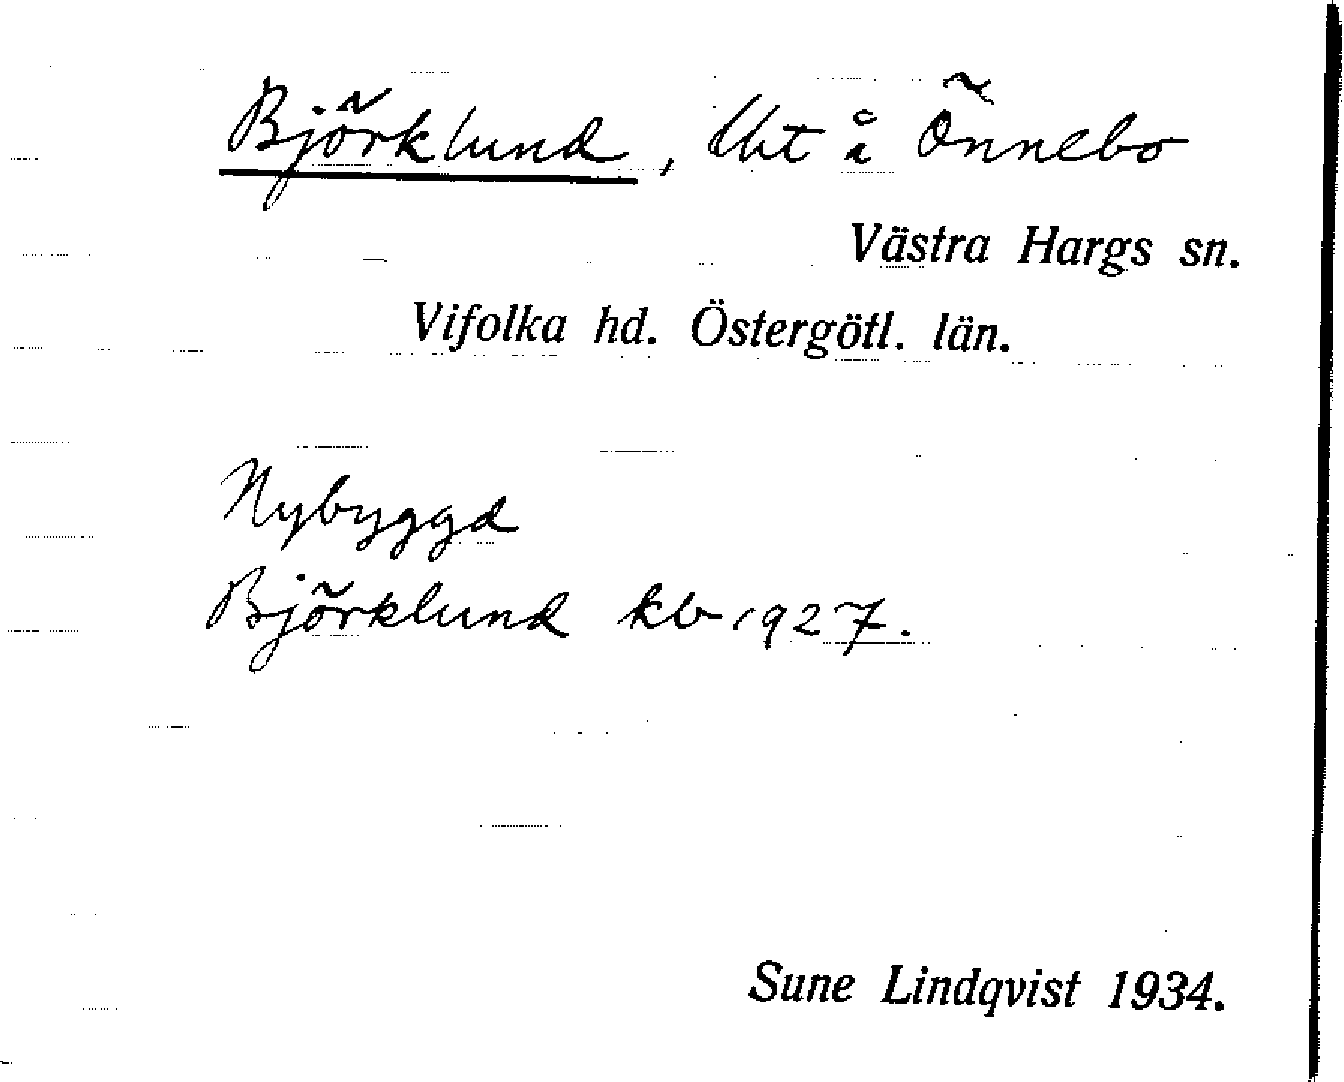 Björklund, lht å Önnebo
Västra Hargs sn.
Vifolka hd. Östergötl. län.
Nybyggd
Björklund kb 1927.
Sune Lindqvist 1934.